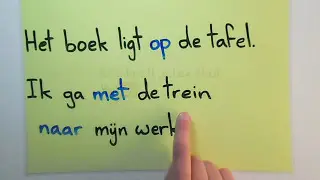 Het boek ligt op de tafel.
Ik ga met de trein
naar mijn werk